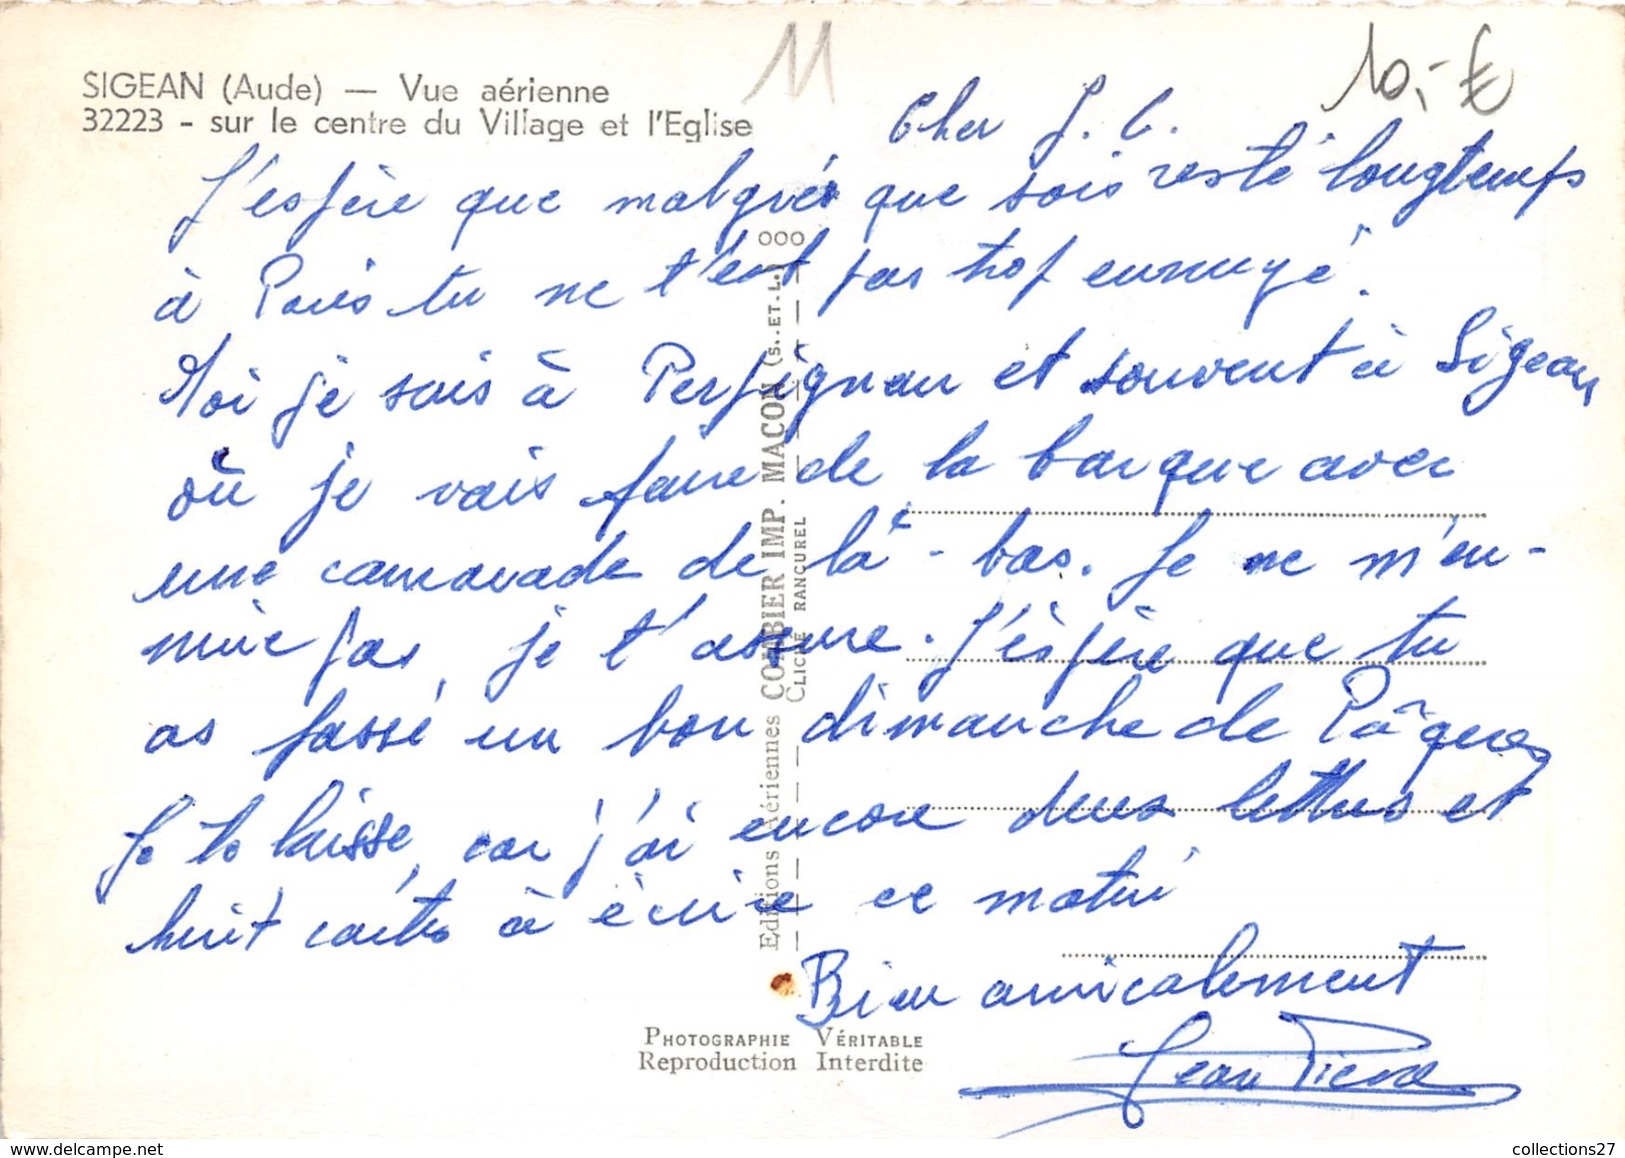 SIGEAN (Aude) — Vue aérienne
32223 - sur le centre du Village et l'Eglise
11
10,- €
Cher J. C.
J'espère que malgré que sois resté longtemps
à Paris tu ne t'est pas trop ennuyé.
Moi je suis à Perpignan et souvent à Sigean
où je vais faire de la barque avec
une camarade de là-bas. Je ne m'en-
nuie pas, je t'assure. J'espère que tu
as passé un bon dimanche de Pâques
Je te laisse, car j'ai encore deux lettres et
huit cartes à écrire ce matin
Bien amicalement
Jean Pierre
Editions Aériennes COMBIER IMP. MACON (S.-ET-L.) ooo
CLICHÉ RANCUREL
PHOTOGRAPHIE VÉRITABLE
Reproduction Interdite
collections27